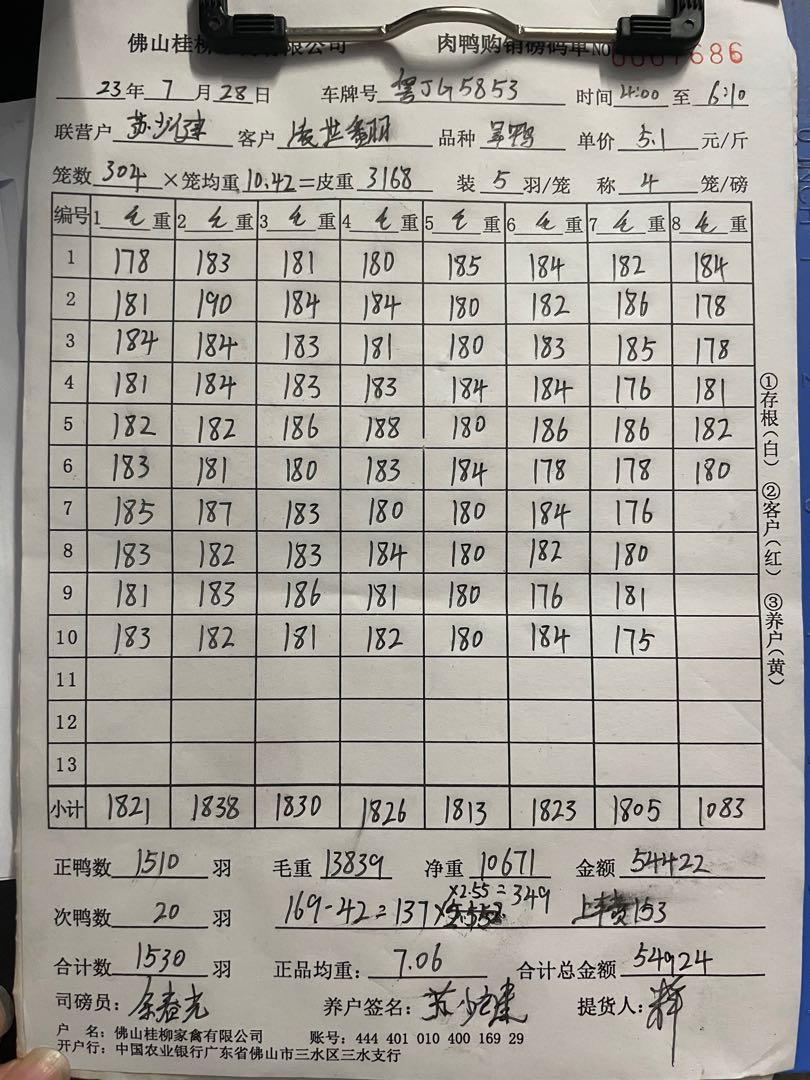 佛山桂柳 有限公司 肉鸭购销磅码单 NO 0007686
23年 7 月 28日 车牌号 粤JG5853 时间 4:00 至 6:10
联营户 苏 建 客户 品种 鸭 单价 5.1 元/斤
笼数 304 ×笼均重 10.42=皮重 3168 装 5 羽/笼 称 4 笼/磅
编号 1 毛 重 2 毛 重 3 毛 重 4 毛 重 5 毛 重 6 毛 重 7 毛 重 8 毛 重
1 178 183 181 180 185 184 182 184
2 181 190 184 184 180 182 186 178
3 184 184 183 181 180 183 185 178
4 181 184 183 183 184 184 176 181
5 182 182 186 188 180 186 186 182
6 183 181 180 183 184 178 178 180
7 185 187 183 180 180 184 176
8 183 182 183 184 180 182 180
9 181 183 186 181 180 176 181
10 183 182 181 182 180 184 175
11
12
13
小计 1821 1838 1830 1826 1813 1823 1805 1083
正鸭数 1510 羽 毛重 13839 净重 10671 金额 54422
次鸭数 20 羽 169-42=137×2.55=349 上 153
合计数 1530 羽 正品均重: 7.06 合计总金额 54924
司磅员: 养户签名: 苏 建 提货人: 辉
户 名: 佛山桂柳家禽有限公司 账号: 444 401 010 400 169 29
开户行: 中国农业银行广东省佛山市三水区三水支行
①存根(白) ②客户(红) ③养户(黄)